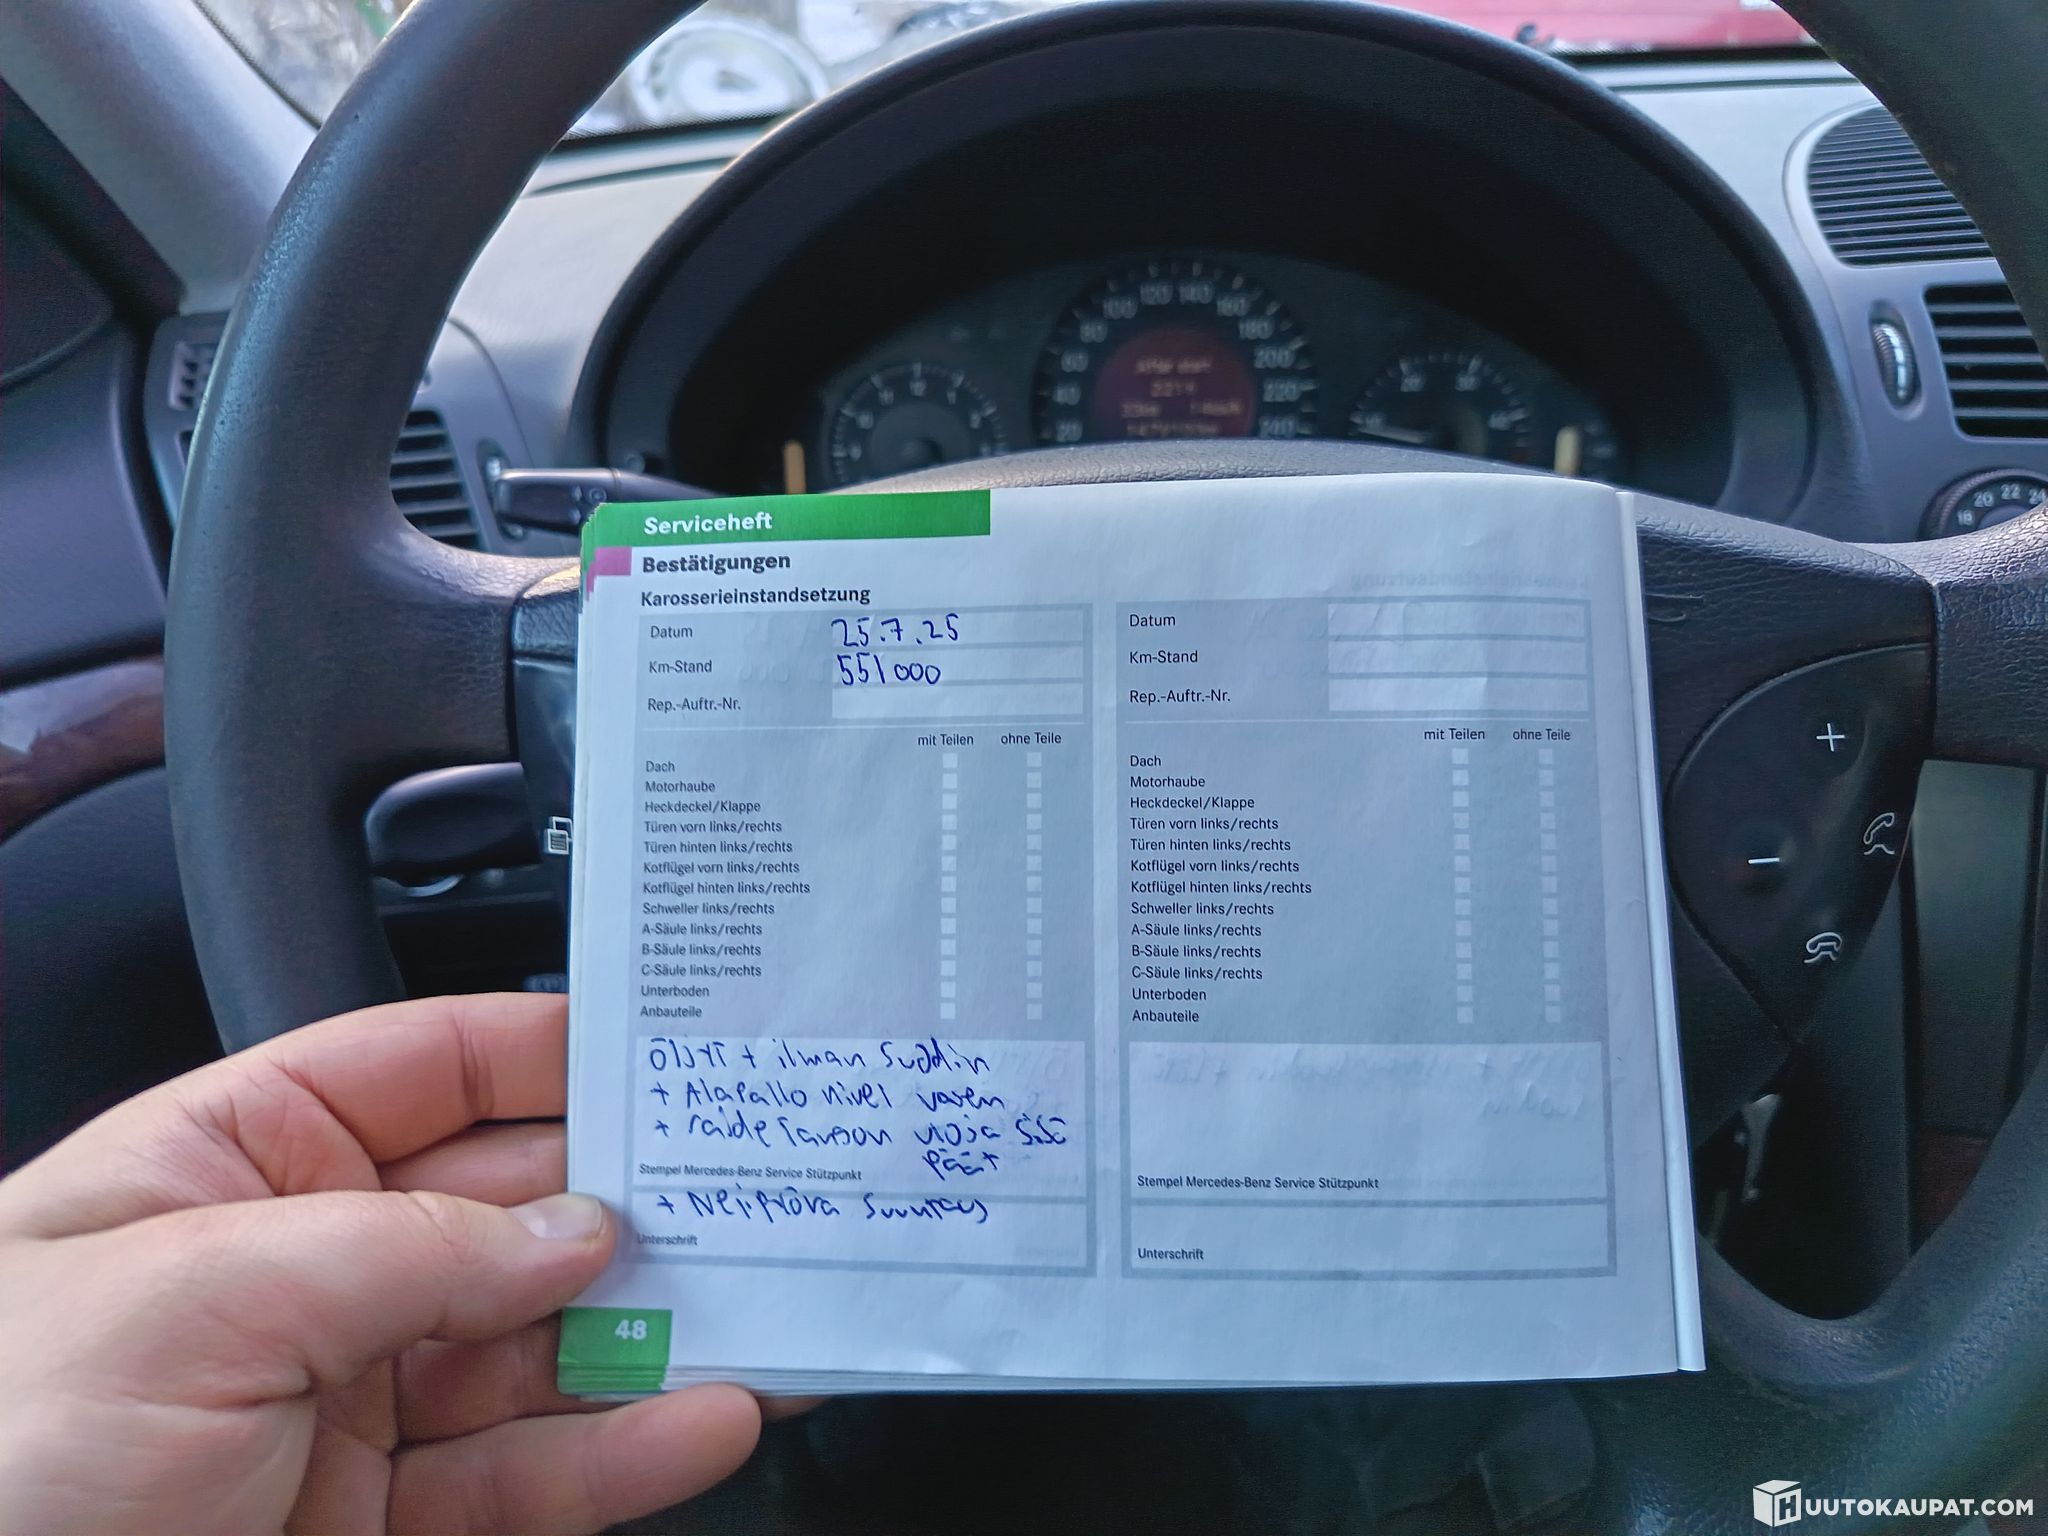 100 120 140 160
80 180
60 200
40 220
20 240
After start
20 22 24
18
Serviceheft
Bestätigungen
Karosserieinstandsetzung
Datum 25.7.25
Km-Stand 551000
Rep.-Auftr.-Nr.
mit Teilen ohne Teile
Dach
Motorhaube
Heckdeckel/Klappe
Türen vorn links/rechts
Türen hinten links/rechts
Kotflügel vorn links/rechts
Kotflügel hinten links/rechts
Schweller links/rechts
A-Säule links/rechts
B-Säule links/rechts
C-Säule links/rechts
Unterboden
Anbauteile
öljyt + ilman suodin
+ Alapallo nivel vasen
+ raidetangon uloja sisä
päät
Stempel Mercedes-Benz Service Stützpunkt
+ Nelipyörä suuntaus
Unterschrift
48
Datum
Km-Stand
Rep.-Auftr.-Nr.
mit Teilen ohne Teile
Dach
Motorhaube
Heckdeckel/Klappe
Türen vorn links/rechts
Türen hinten links/rechts
Kotflügel vorn links/rechts
Kotflügel hinten links/rechts
Schweller links/rechts
A-Säule links/rechts
B-Säule links/rechts
C-Säule links/rechts
Unterboden
Anbauteile
Stempel Mercedes-Benz Service Stützpunkt
Unterschrift
+
−
HUUTOKAUPAT.COM